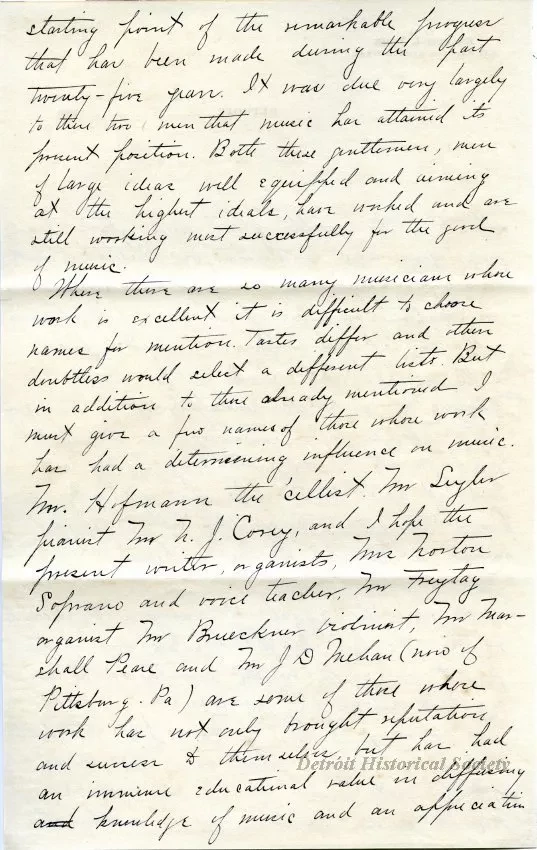 starting point of the remarkable progress
that has been made during the past
twenty-five years. It was due very largely
to these two men that music has attained its
present position. Both these gentlemen, men
of large ideas well equipped and aiming
at the highest ideals, have worked and are
still working most successfully for the good
of music.
Where there are so many musicians whose
work is excellent it is difficult to choose
names for mention. Tastes differ and others
doubtless would select a different lists. But
in addition to those already mentioned I
must give a few names of those whose work
has had a determining influence on music.
Mr. Hofmann the 'cellest. Mr
pianist Mr N. J. Corey, and I hope the
present writer, organists, Mrs Norton
Soprano and voice teacher, Mr Freytag
organist Mr Brueckner violinist, Mr Mar-
shall Pease and Mr J D Mehan (now of
Pittsburg. Pa) are some of those whose
work has not only brought reputation
and success to themselves but has had
Detroit Historical Society
an immense educational value in diffusing
and knowledge of music and an appreciation